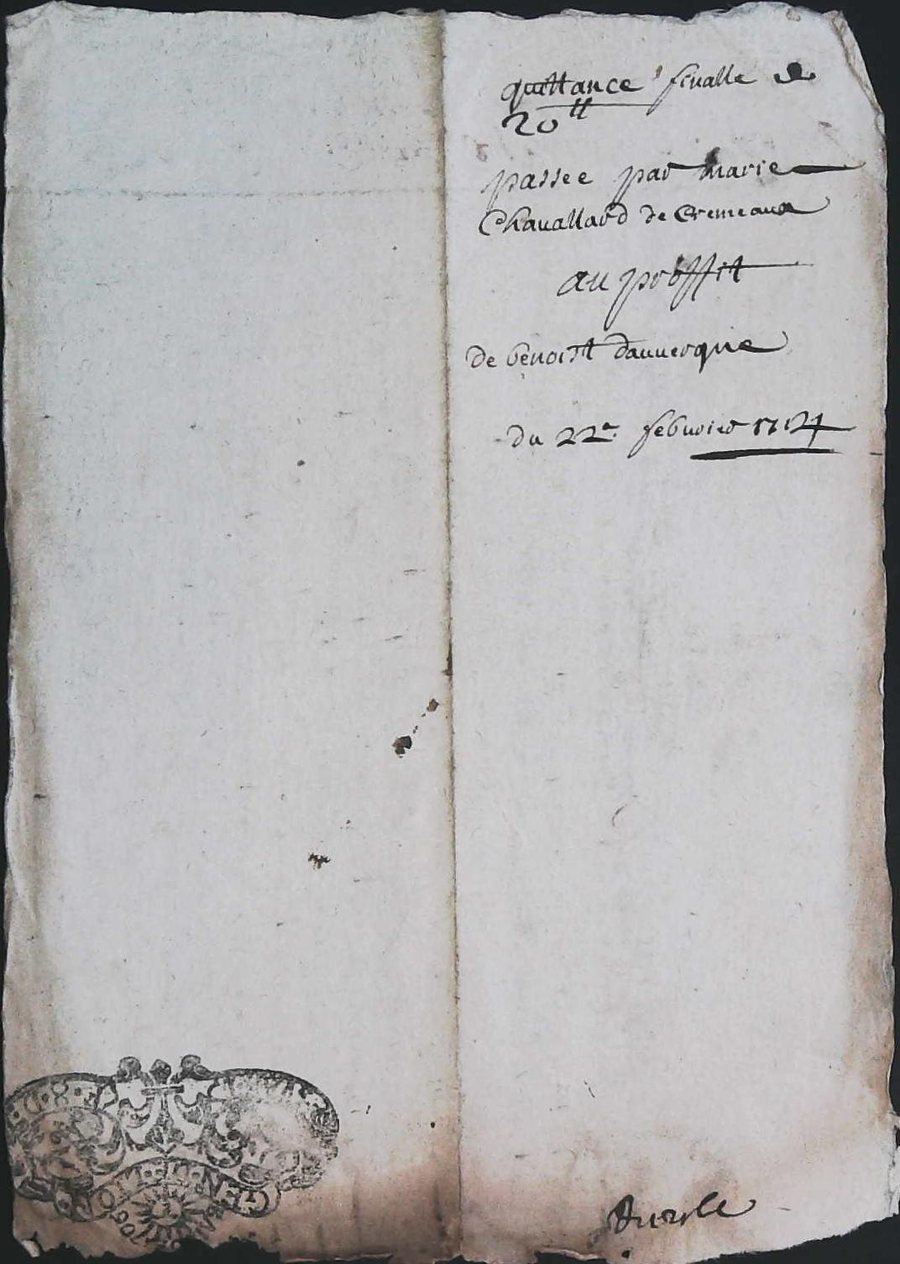 quittance finalle de
20tt
passée par marie
Chauallard de Cremeaux
au proffit
de benoist dauuergne
du 22e febvrier 1724
GEN